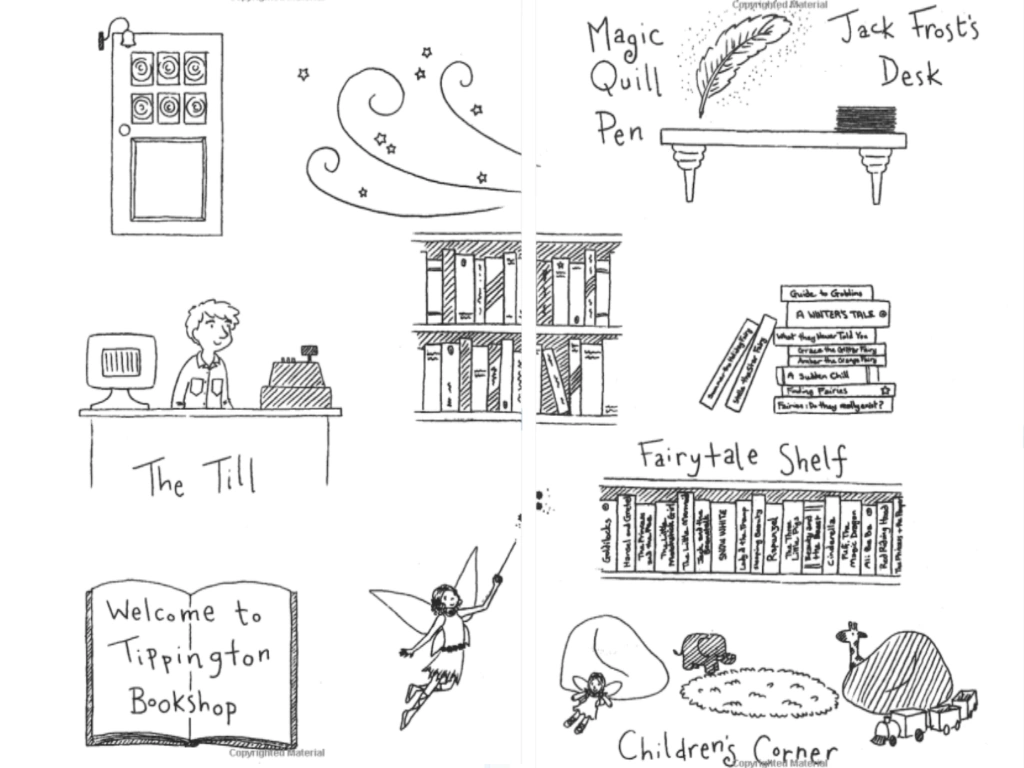 Copyrighted Material
Copyrighted Material
Magic
Quill
Pen
Jack Frost's
Desk
Guide to Goblins
A WINTER'S TALE
What they Never Told You
Grace the Glitter Fairy
Amber the Orange Fairy
A Sudden Chill
Finding Fairies
Fairies: Do they really exist?
Stella the Star Fairy
The Till
Fairytale Shelf
Goldilocks
Hansel and Gretel
The Princess and the Pea
The Little Matchstick Girl
The Little Mermaid
Jack and the Beanstalk
SNOW WHITE
Lady & the Tramp
Sleeping Beauty
Rapunzel
The Three Little Pigs
Beauty and the Beast
Cinderella
Puff, The Magic Dragon
Ali Ba Ba
Red Riding Hood
Welcome to
Tippington
Bookshop
Children's Corner
Copyrighted Material
Copyrighted Material